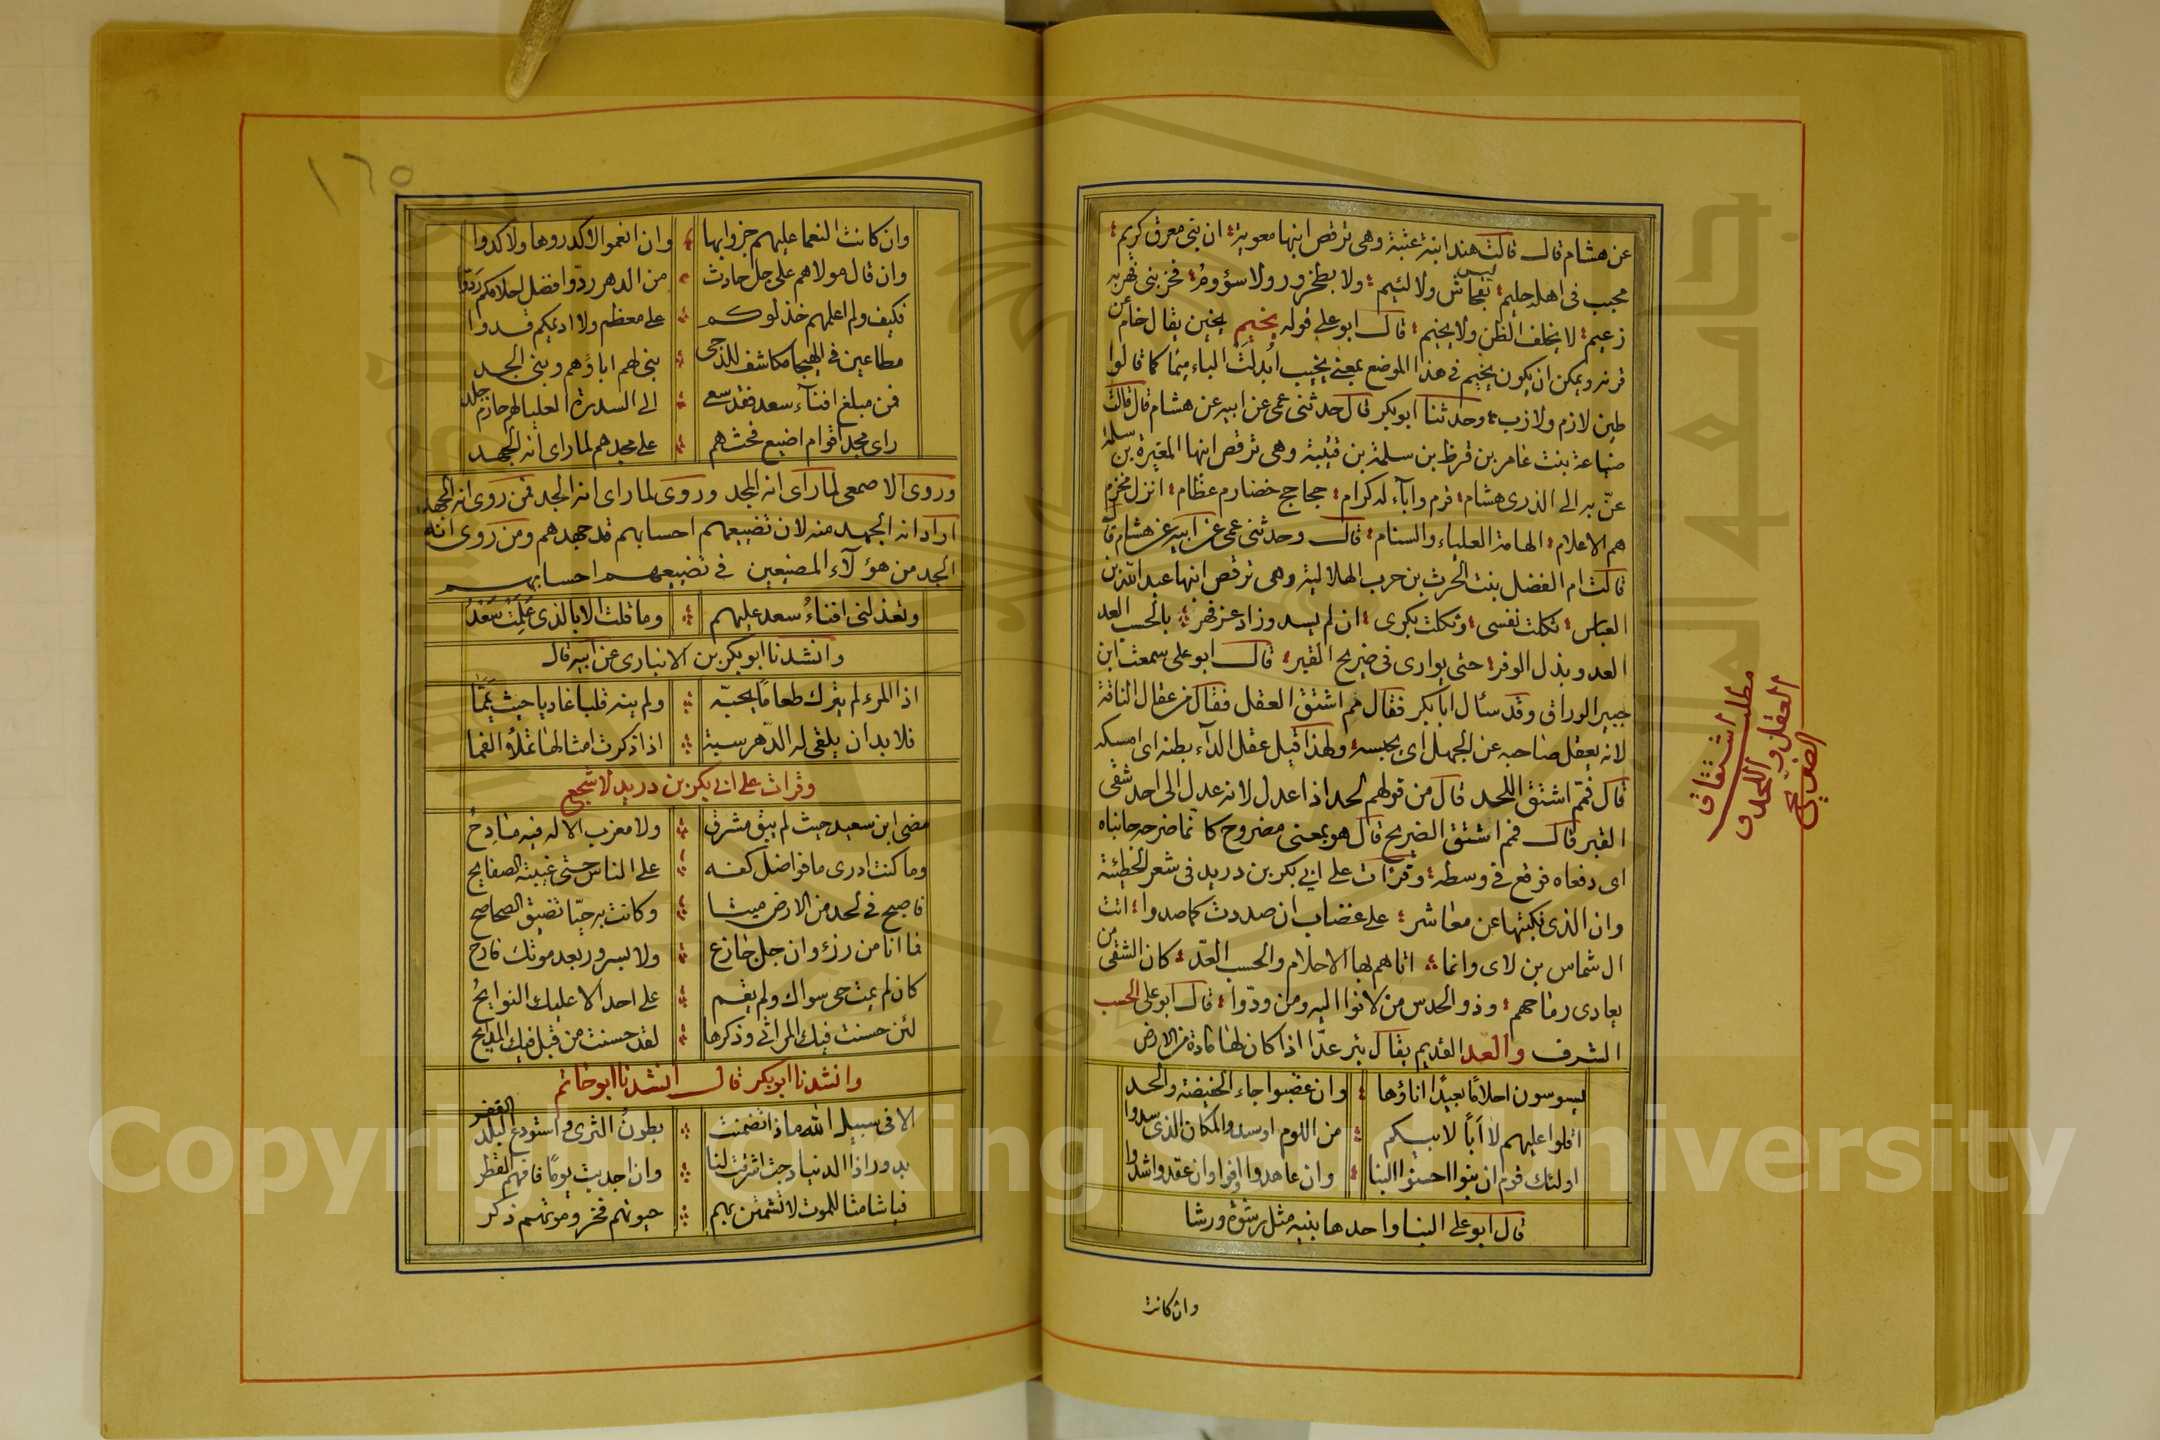 عن هشام قال قالت هند ابنة عتبة وهى ترقص ابنها معوية ان بنى معرق كريم
محبب فى اهله حليم ليس بفحاش ولا لئيم ولا بطخرور ولا سؤوم فخر بنى فهر به
زعيم لا يخلف الظن ولا يخيم قال ابو على قوله يخيم يجبن يقال خام عن
قرنه ويمكن ان يكون يخيم فى هذا الموضع بمعنى يخيب ابدلت الباء ميما كما قالوا
طين لازم ولازب وحدثنا ابو بكر قال حدثنى عمى عن ابيه عن هشام قال قالت
ضباعة بنت عامر بن قرظ بن سلمة بن قشيرة وهى ترقص ابنها المغيرة بن سلمة
عن به الى الذرى هشام قرم وآباء له كرام جحاجح خضارم عظام انزل مخزوم
هم الاعلام الهامة العلياء والسنام قال وحدثنى عمى عن ابيه عن هشام قال
قالت ام الفضل بنت الحرث بن حرب الهلالية وهى ترقص ابنها عبد الله بن
العباس ثكلت نفسى وثكلت بكرى ان لم يسد وزاد عز فهر بالحسب العد
العد وبذل الوفر حتى يوارى فى ضريح القبر قال ابو على سمعت ابن
جبير الوراق وقد سأل ابا بكر فقال مم اشتق العقل فقال من عقال الناقة
لانه يعقل صاحبه عن الجهل اى يحبسه ولهذا قيل عقل الدآء بطنه اى امسكه
قال فمم اشتق اللحد قال من قولهم لحد اذا عدل لانه عدل الى احد شقى
القبر قال فمم اشتق الضريح قال هو بمعنى مضروح كانما ضرحه جانباه
اى دفعاه فوقع فى وسطه وقرات على ابى بكر بن دريد فى شعر الحطيئة
وان الذى نكبتها عن معاشر على غضاب ان صددت كما صدوا اتت
ال شماس بن لاى وانما اتاهم بها الاحلام والحسب العدّ كان الشقى من
يعادى رماحهم وذو الحدس من لانوا اليه ومن ودّوا قال ابو على الحسب
الشرف والعد القديم يقال بئر عدّا اذا كان لها مادة من الارض
يسوسون احلاما بعيدا اناؤها وان غضبوا جاء الحفيضة والحد
اقلوا عليهم لا أباً لابيكم من اللوم او سدوا المكان الذى سدوا
اولئك قوم ان بنوا احسنوا البنا وان عاهدوا اوفوا وان عقدوا شدوا
قال ابو على البنا واحدها بنيه مثل رشوة ورشا
وان كانت
مطلب اشتقاق
العقل واللحد و
الضريح
١٦٥
وان كانت النعما عليهم جزوا بها وان انعموا لا كدروها ولا كدوا
وان قال مولاهم على جل حادث من الدهر ردّوا فضل احلامكم ردّوا
فكيف ولم اعلمهم خذلوكم على معظم ولا اديمكم قدوا
مطاعين فى الهيجا مكاشف للدجى بنى لهم اباؤهم وبنى الجد
فمن مبلغ افنآء سعد فقد سعى الى السورة العليا لهم حازم جلد
راى مجد اقوام اضيع فحثهم على مجدهم لما راى انه الجهد
وروى الاصمعى لما راى انه المجد وروى لما راى انه الجد فمن روى انه الجهد
اراد انه الجهد منه لان تضييعهم احسابهم قد جهدهم ومن روى انه
الجد من هؤلآء المضيعين فى تضييعهم احسابهم
وتعذلنى افناءُ سعد عليهم وما قلت الا بالذى علمت سعدُ
وانشدنا ابو بكر بن الانبارى عن ابيه قال
اذا المرء لم يترك طعاما يحبّه ولم ينه قلبا غاويا حيث يمّما
فلا بد ان يلقى له الدّهر سبة اذا ذكرت امثالها تملأ الفما
وقرات على ابى بكر بن دريد لاشجع
مضى ابن سعيد حيث لم يبق مشرق ولا مغرب الا له فيه مادحُ
وما كنت ادرى ما فواضل كفه على الناس حتى غيبته الصفايح
فاصبح فى لحد من الارض ميتا وكانت به حيّا تضيق الصحاصح
فما انا من رزء وان جل جازع ولا بسرور بعد موتك فارح
كان لم يمت حى سواك ولم يقم على احد الا عليك النوايحُ
لئن حسنت فيك المراثى وذكرها لقد حسنت من قبل فيك المدايح
وانشدنا ابو بكر قال انشدنا ابو حاتم
الا فى سبيل الله ماذا تضمنت بطونُ الثرى واستودع البلد القفر
بدور اذا الدنيا دجت اشرقت لنا وان اجدبت يومًا فايديهم القطر
فيا شامتا للموت لا تشمتن بهم حيوتهم فخر وموتهم ذكر
Copyright © King Saud University